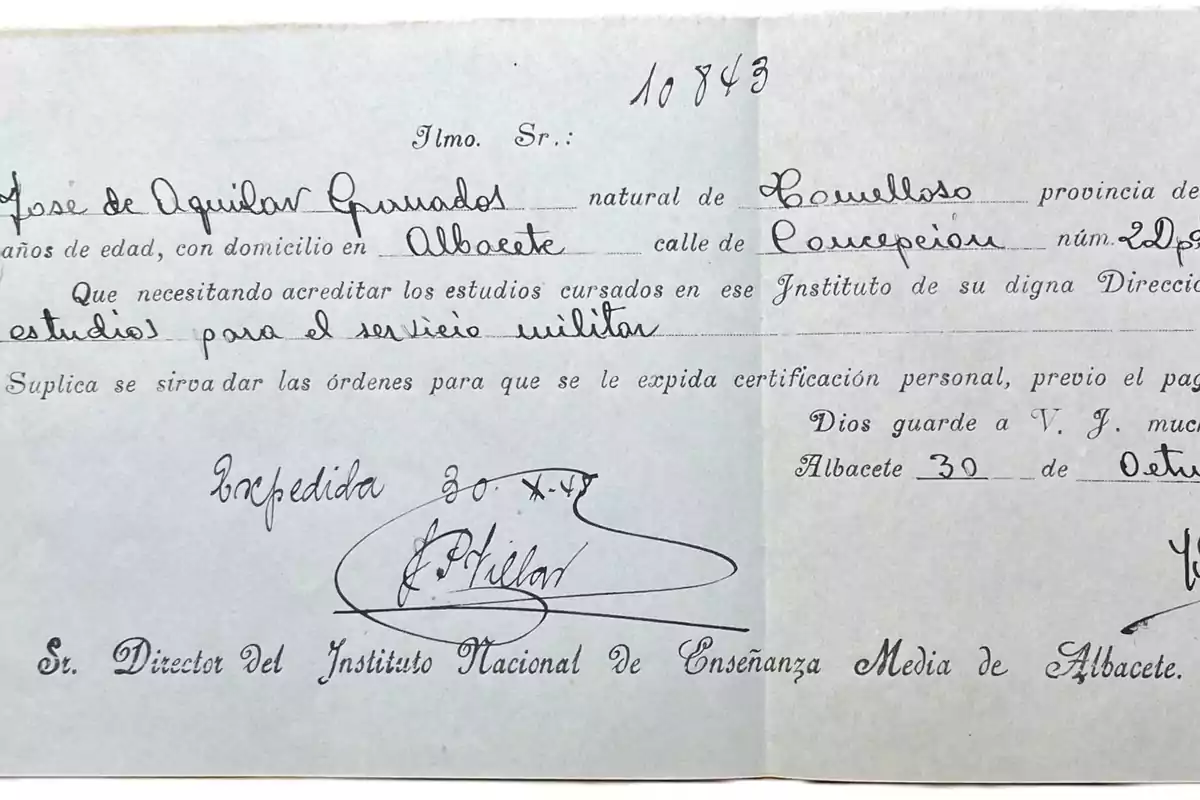 10843
Ilmo. Sr.:
José de Aguilar Granados natural de Tomelloso provincia de
años de edad, con domicilio en Albacete calle de Concepción núm. 2 Dp
Que necesitando acreditar los estudios cursados en ese Instituto de su digna Direcció
estudios para el servicio militar
Suplica se sirva dar las órdenes para que se le expida certificación personal, previo el pag
Dios guarde a V. I. much
Albacete 30 de Octu
Expedida 30. X-
Villar
Sr. Director del Instituto Nacional de Enseñanza Media de Albacete.